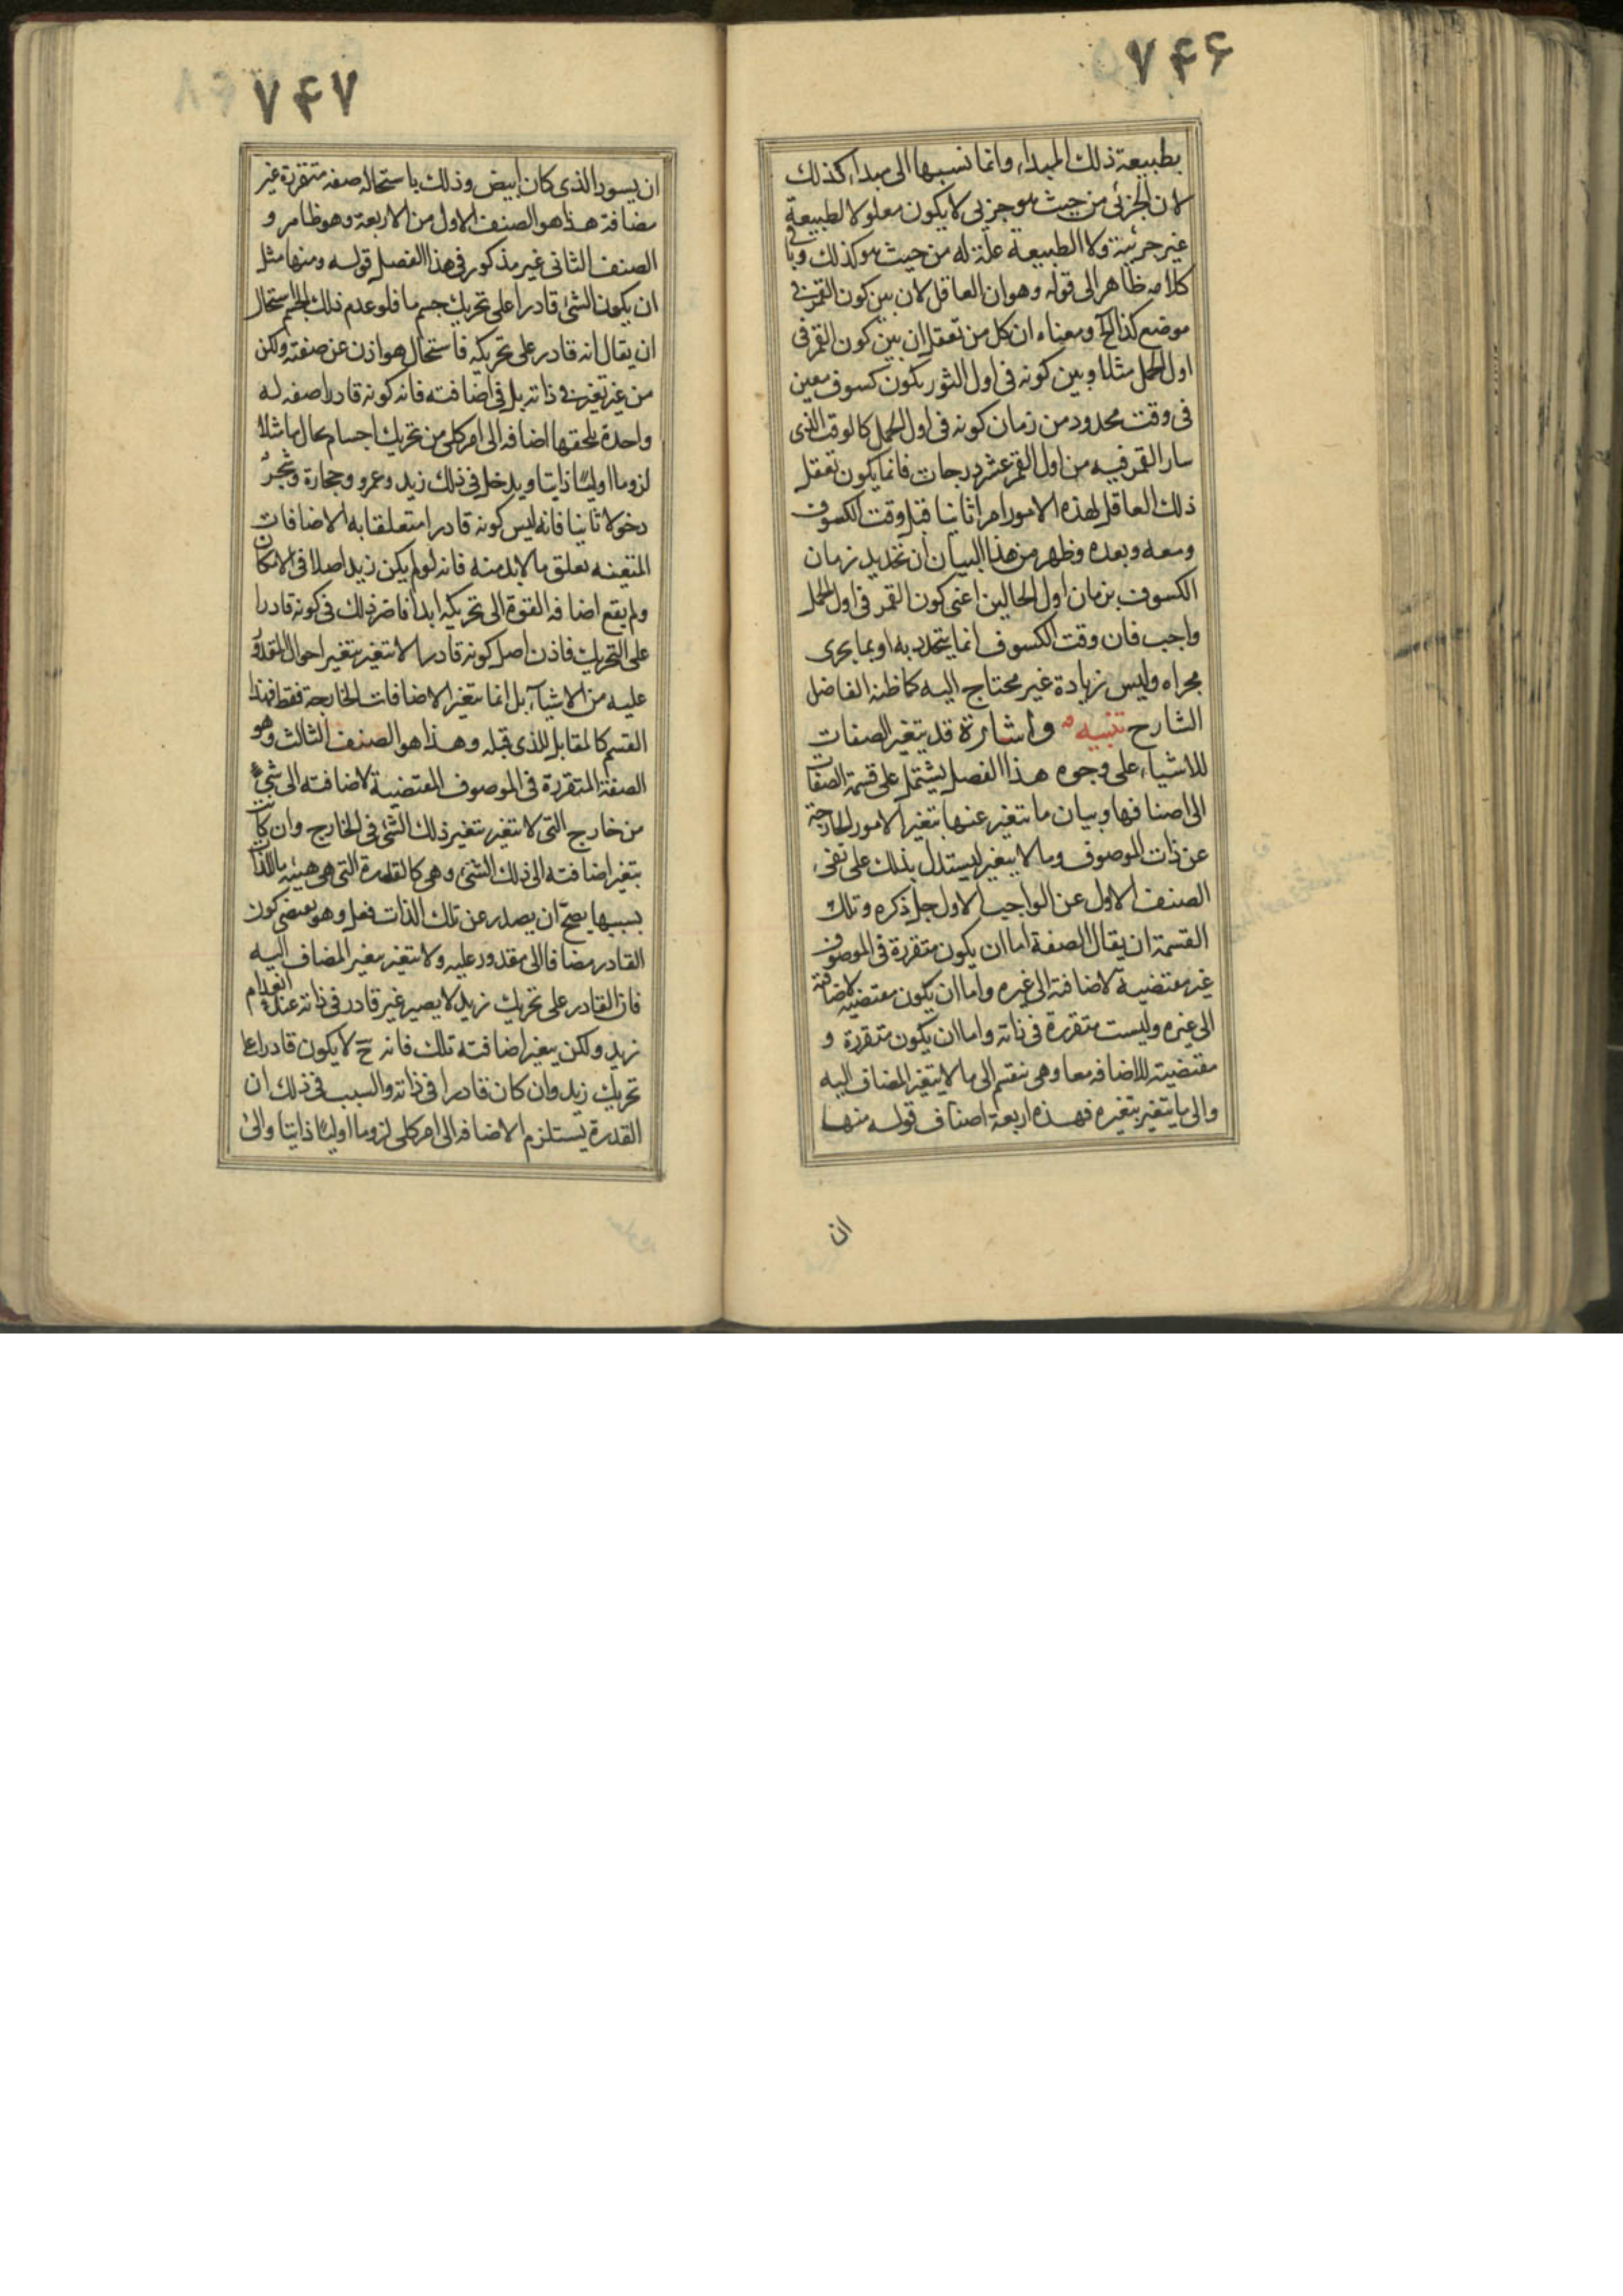 ۷۴۶
بطبیعة ذلك المبداء وانما نسبها الی مبداء كذلك
لان الجزئی من حیث هو جزئی لا یكون معلولا لطبیعة
غیر جزئیة ولا الطبیعة علة له من حیث هو كذلك وباقی
كلامه ظاهر الی قوله وهو ان العاقل لان بین كون القمر فی
موضع كذا الخ ومعناه ان كل من تعقل ان بین كون القمر فی
اول الحمل مثلا وبین كونه فی اول الثور یكون كسوف معین
فی وقت محدود من زمان كونه فی اول الحمل كالوقت الذی
سار القمر فیه من اول القمر عشر درجات فانما یكون تعقل
ذلك العاقل لهذه الامور امرا ثابتا قبل وقت الكسوف
ومعه وبعده وظهر من هذا البیان ان تحدید زمان
الكسوف بزمان اول الحالین اعنی كون القمر فی اول الحمل
واجب فان وقت الكسوف انما یتحدد به او بما یجری
مجراه ولیس زیادة غیر محتاج الیه كما ظنه الفاضل
الشارح تنبیه واشارة قد یتغیر الصفات
للاشیاء علی وجوه هذا الفصل یشتمل علی قسمة الصفات
الی اصنافها وبیان ما یتغیر عنها بتغیر الامور الخارجة
عن ذات الموصوف وما لا یتغیر لیستدل بذلك علی نفی
الصنف الاول عن الواجب الاول جل ذكره وتلك
القسمة ان یقال الصفة اما ان یكون متقررة فی الموصوف
غیر مقتضیة لاضافته الی غیره واما ان یكون مقتضیة لاضافته
الی غیره ولیست متقررة فی ذاته واما ان یكون متقررة و
مقتضیة للاضافه معا وهی تنقسم الی ما لا یتغیر المضاف الیه
والی ما یتغیر بتغیره فهذه اربعة اصناف قوله منها
ان
۷۴۷
ان یسود الذی كان ابیض وذلك باستحالة صفه متقررة غیر
مضافة هذا هو الصنف الاول من الاربعة وهو ظاهر و
الصنف الثانی غیر مذكور فی هذا الفصل قوله ومنها مثل
ان یكون الشئ قادرا علی تحریك جسم ما فلو عدم ذلك الجسم استحال
ان یقال انه قادر علی تحریكه فاستحال هو اذن عن صفته ولكن
من غیر تغیر فی ذاته بل فی اضافته فانه كونه قادرا صفه له
واحدة تلحقها اضافه الی امر كلی من تحریك اجسام بحال ما مثلا
لزوما اولیا ذاتیا ویدخل فی ذلك زید وعمرو وحجارة وشجر
دخولا ثانیا فانه لیس كونه قادرا متعلقا به الاضافات
المتعینه تعلق ما لا بد منه فانه لو لم یكن زید اصلا فی الامكان
ولم یقع اضافه القوة الی تحریكه ابدا ما ضر ذلك فی كونه قادرا
علی التحریك فاذن اصل كونه قادرا لا تتغیر بتغیر احوال المقدور
علیه من الاشیاء بل انما یتغیر الاضافات الخارجة فقط فهذا
القسم كالمقابل للذی قبله وهذا هو الصنف الثالث وهو
الصفة المتقررة فی الموصوف المقتضیة لاضافته الی شئ
من خارج التی لا تتغیر بتغیر ذلك الشئ فی الخارج وان كانت
یتغیر اضافته الی ذلك الشئ وهی كالقدرة التی هی هیئه ما للذات
بسببها یصح ان یصدر عن تلك الذات فعل وهو یقتضی كون
القادر مضافا الی مقدور علیه ولا تتغیر بتغیر المضاف الیه
فان القادر علی تحریك زید لا یصیر غیر قادر فی ذاته عند انعدام
زید ولكن یتغیر اضافته تلك فانه ح لا یكون قادرا علی
تحریك زید وان كان قادرا فی ذاته والسبب فی ذلك ان
القدرة یستلزم الاضافه الی امر كلی لزوما اولیا ذاتیا والی